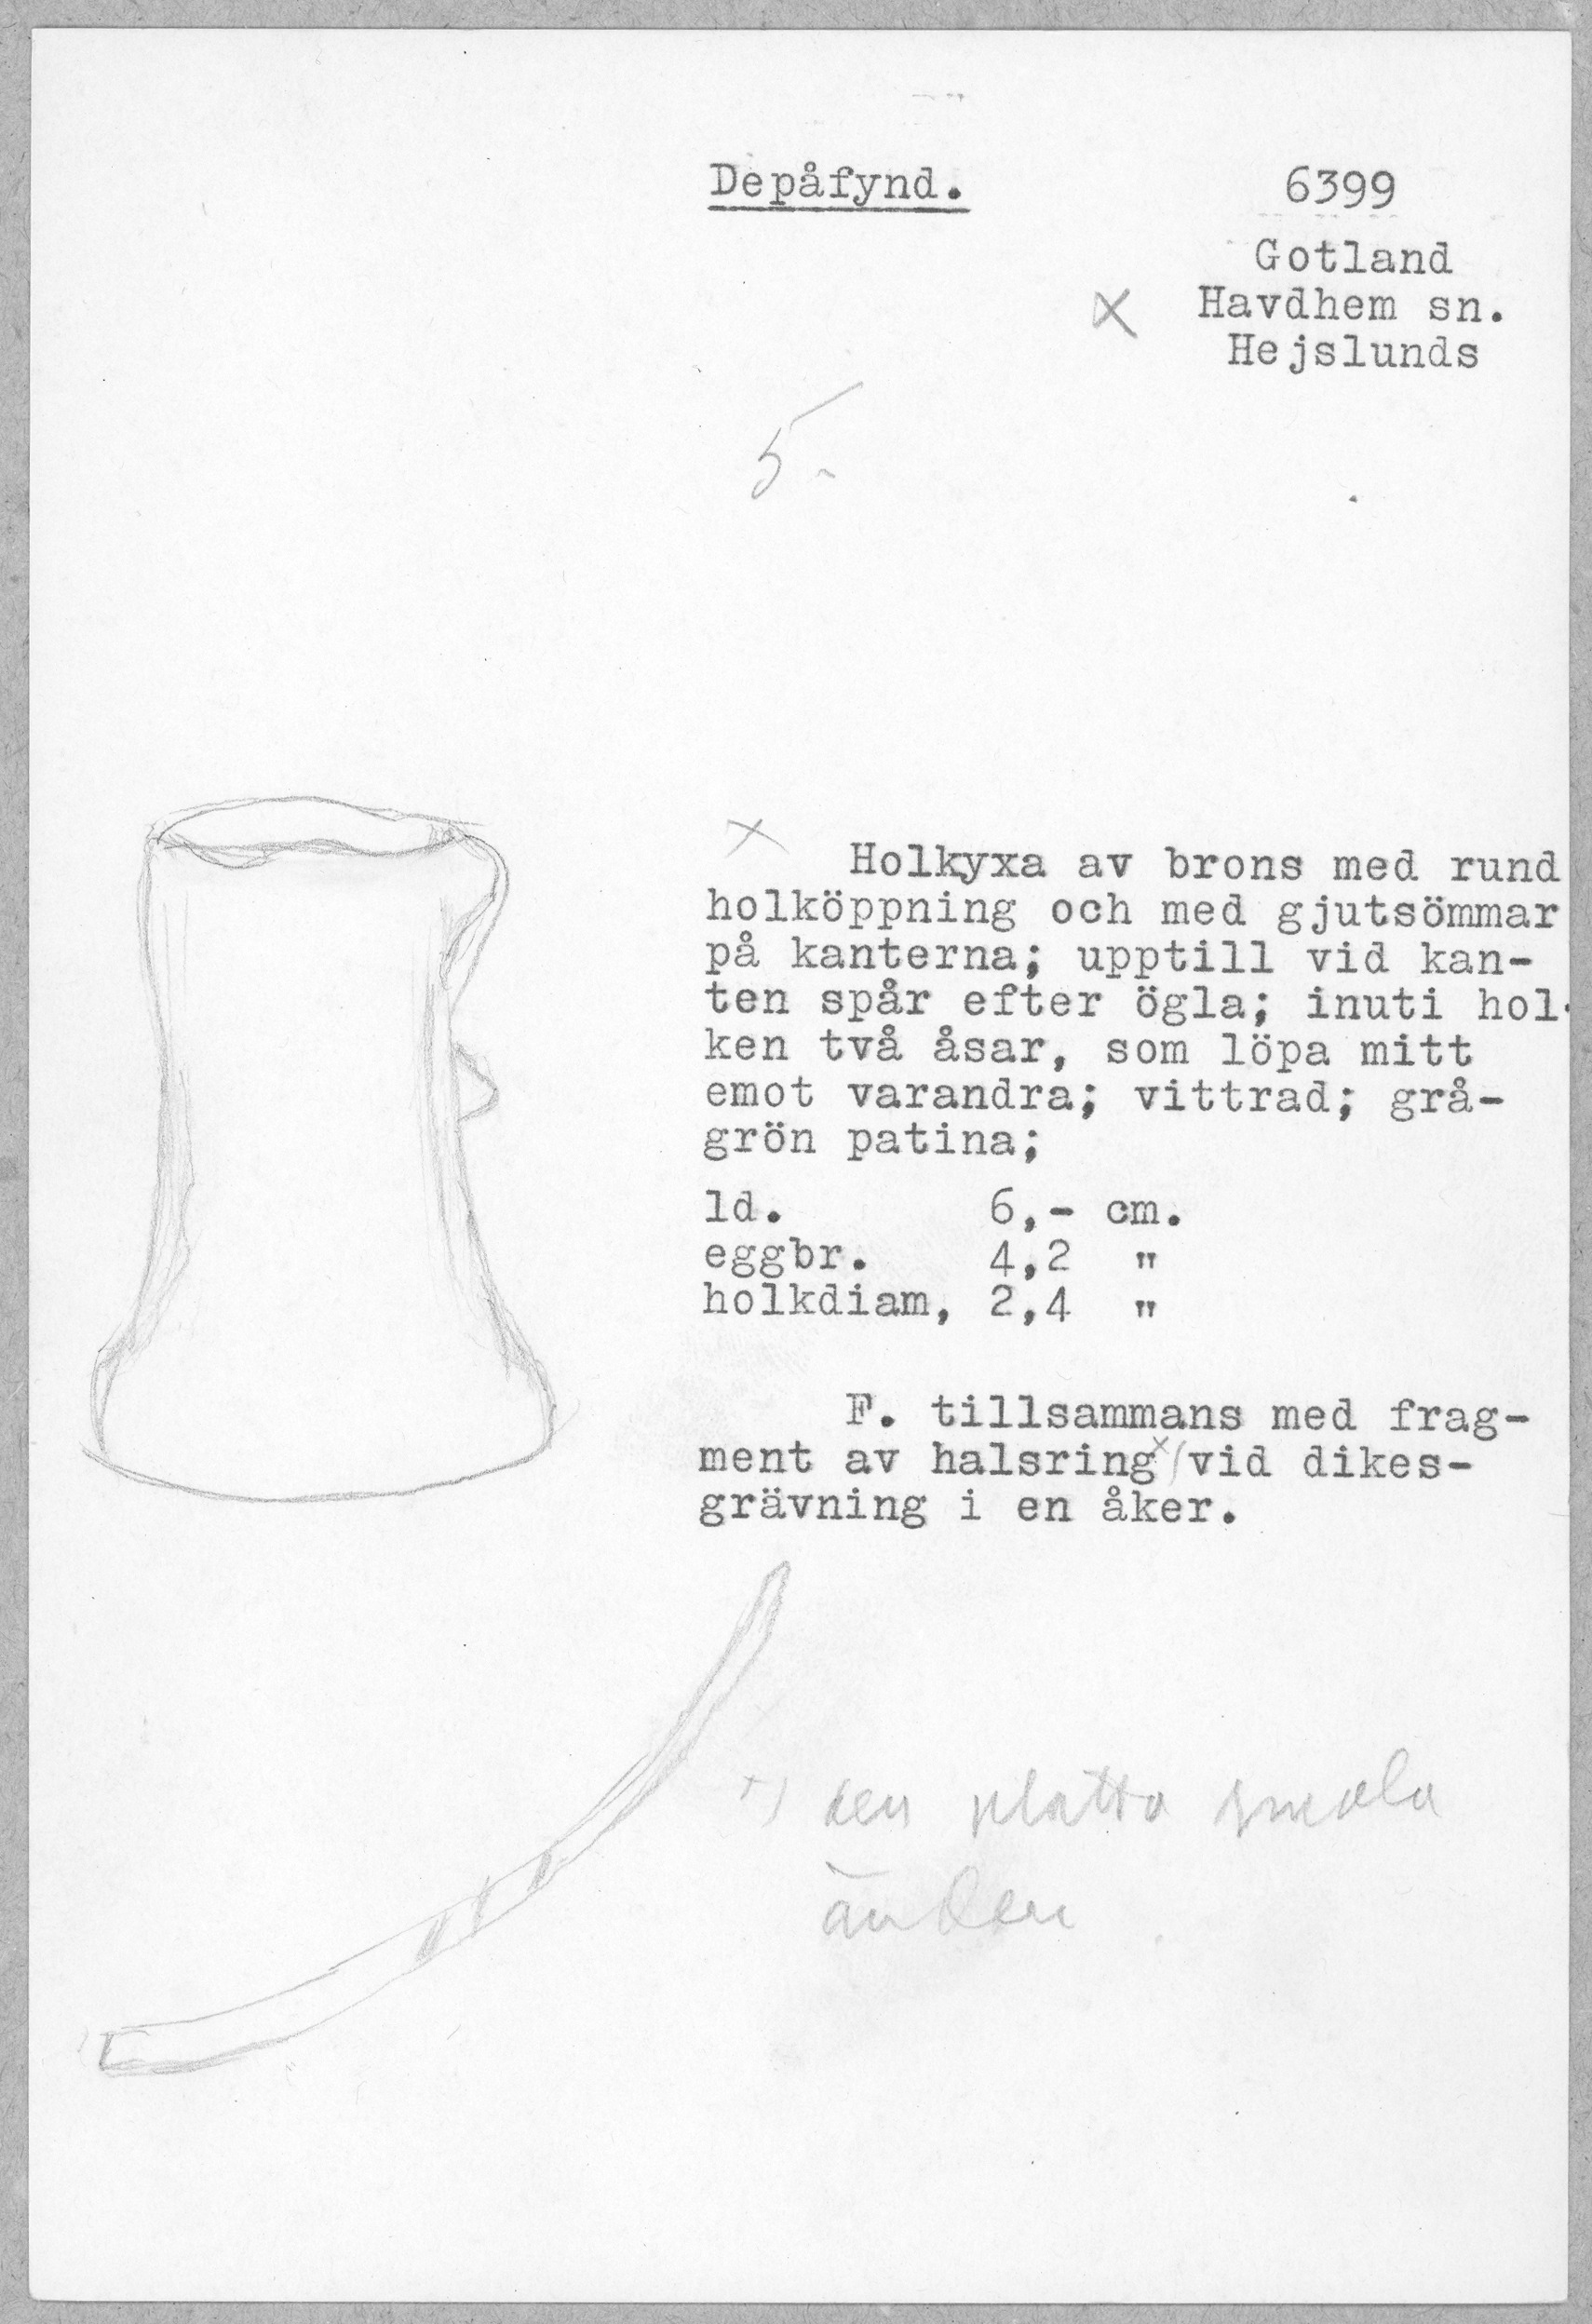 Depåfynd.
6399
Gotland
x Havdhem sn.
Hejslunds
5-
x Holkyxa av brons med rund
holköppning och med gjutsömmar
på kanterna; upptill vid kan-
ten spår efter ögla; inuti hol-
ken två åsar, som löpa mitt
emot varandra; vittrad; grå-
grön patina;
ld. 6,- cm.
eggbr. 4,2 "
holkdiam, 2,4 "
F. tillsammans med frag-
ment av halsring x/ vid dikes-
grävning i en åker.
x) den platta smala
änden